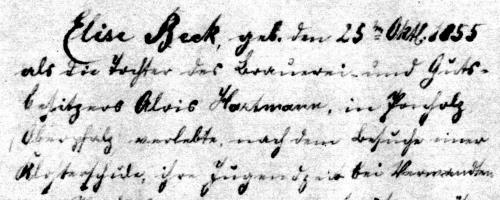 Elise Beck, geb. den 25ten Okt. 1855
als die Tochter des Brauerei- und Guts-
besitzers Alois Hartmann, in Ponholz
Oberpfalz verlebte, nach dem Besuche einer
Klosterschule, ihre Jugendzeit bei Verwandten